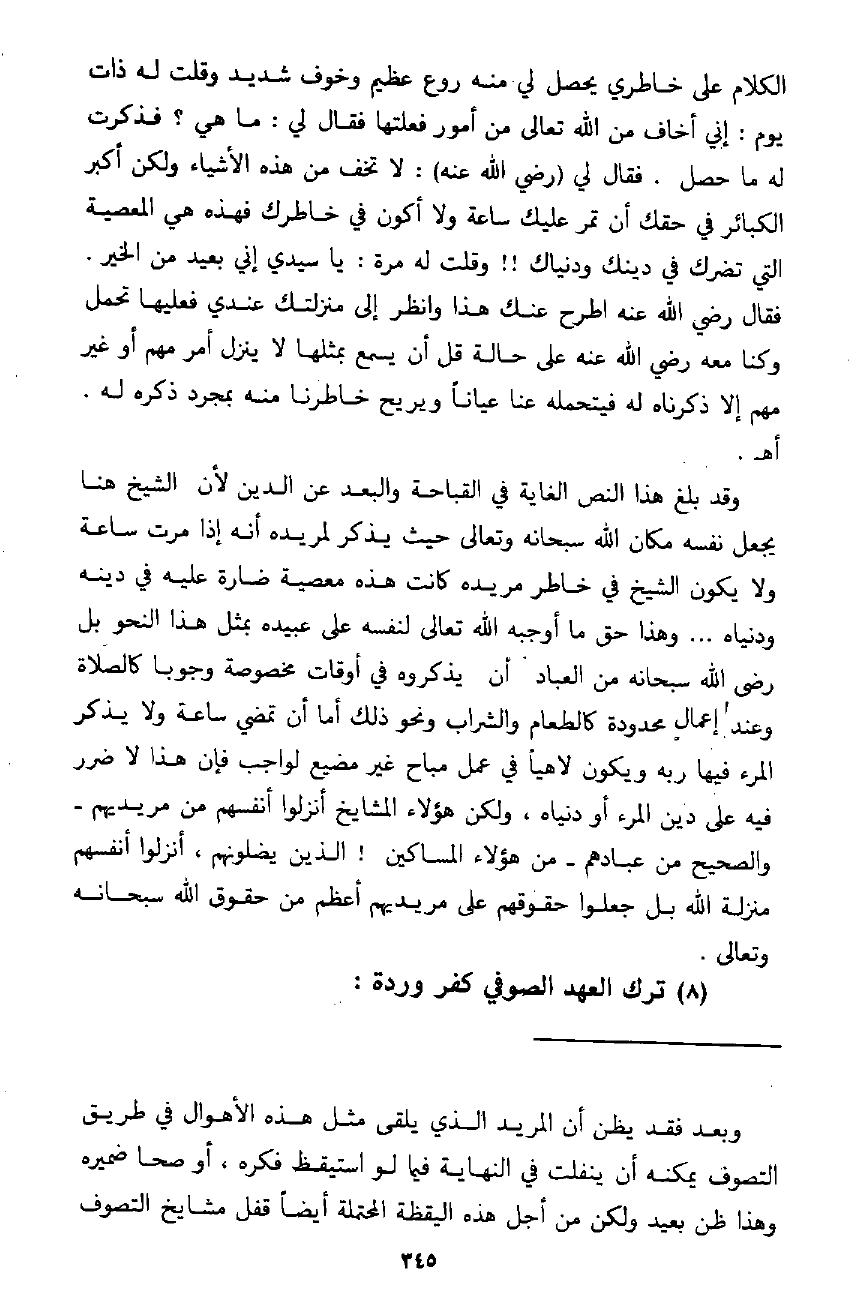 الكلام على خاطري يحصل لي منه روع عظيم وخوف شديد وقلت له ذات
يوم : إني أخاف من الله تعالى من أمور فعلتها فقال لي : ما هي ؟ فذكرت
له ما حصل . فقال لي (رضي الله عنه) : لا تخف من هذه الأشياء ولكن أكبر
الكبائر في حقك أن تمر عليك ساعة ولا أكون في خاطرك فهذه هي المعصية
التي تضرك في دينك ودنياك !! وقلت له مرة : يا سيدي إني بعيد من الخير .
فقال رضي الله عنه اطرح عنك هذا وانظر إلى منزلتك عندي فعليها تحمل
وكنا معه رضي الله عنه على حالة قل أن يسمع بمثلها لا ينزل أمر مهم أو غير
مهم إلا ذكرناه له فيتحمله عنا عياناً ويريح خاطرنا منه بمجرد ذكره له .
أهـ .
وقد بلغ هذا النص الغاية في القباحة والبعد عن الدين لأن الشيخ هنا
يجعل نفسه مكان الله سبحانه وتعالى حيث يذكر لمريده أنه إذا مرت ساعة
ولا يكون الشيخ في خاطر مريده كانت هذه معصية ضارة عليه في دينه
ودنياه ... وهذا حق ما أوجبه الله تعالى لنفسه على عبيده بمثل هذا النحو بل
رضى الله سبحانه من العباد أن يذكروه في أوقات مخصوصة وجوبا كالصلاة
وعند إعمال محدودة كالطعام والشراب ونحو ذلك أما أن تمضي ساعة ولا يذكر
المرء فيها ربه ويكون لاهياً في عمل مباح غير مضيع لواجب فإن هذا لا ضرر
فيه على دين المرء أو دنياه ، ولكن هؤلاء المشايخ أنزلوا أنفسهم من مريديهم -
والصحيح من عبادهم - من هؤلاء المساكين ! الذين يضلونهم ، أنزلوا أنفسهم
منزلة الله بل جعلوا حقوقهم على مريديهم أعظم من حقوق الله سبحانه
وتعالى .
(٨) ترك العهد الصوفي كفر وردة :
وبعد فقد يظن أن المريد الذي يلقى مثل هذه الأهوال في طريق
التصوف يمكنه أن ينفلت في النهاية فيما لو استيقظ فكره ، أو صحا ضميره
وهذا ظن بعيد ولكن من أجل هذه اليقظة المحتملة أيضاً قفل مشايخ التصوف
٣٤٥